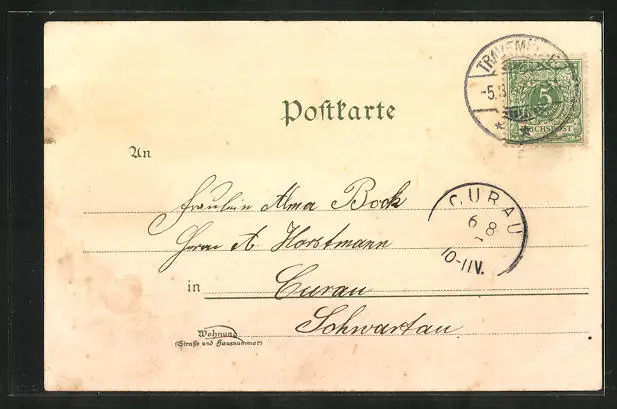 TRAVEMÜNDE
-5.8
5
REICHSPOST
Postkarte
An
Fräulein Alma Bock
Herrn A. Horstmann
CURAU
6 8
10-11V.
in Curau
Schwartau
Wohnung
(Straße und Hausnummer)